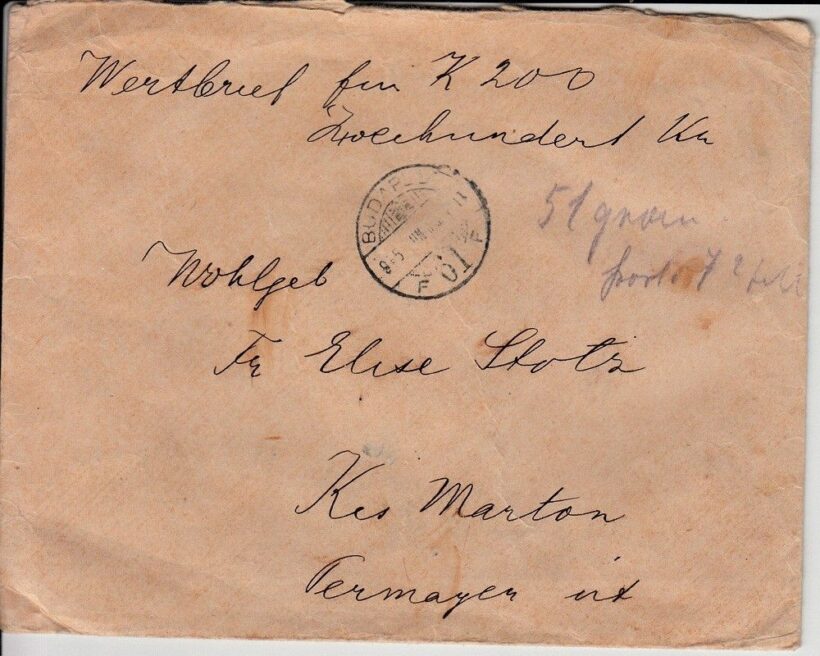 Wertbrief für K 200
Zweihundert Kr
BUDAPEST
51 gram
porto 72
F
61
F
Wohlgeb
Fr Elise Stotz
Kis Marton
Permayer út